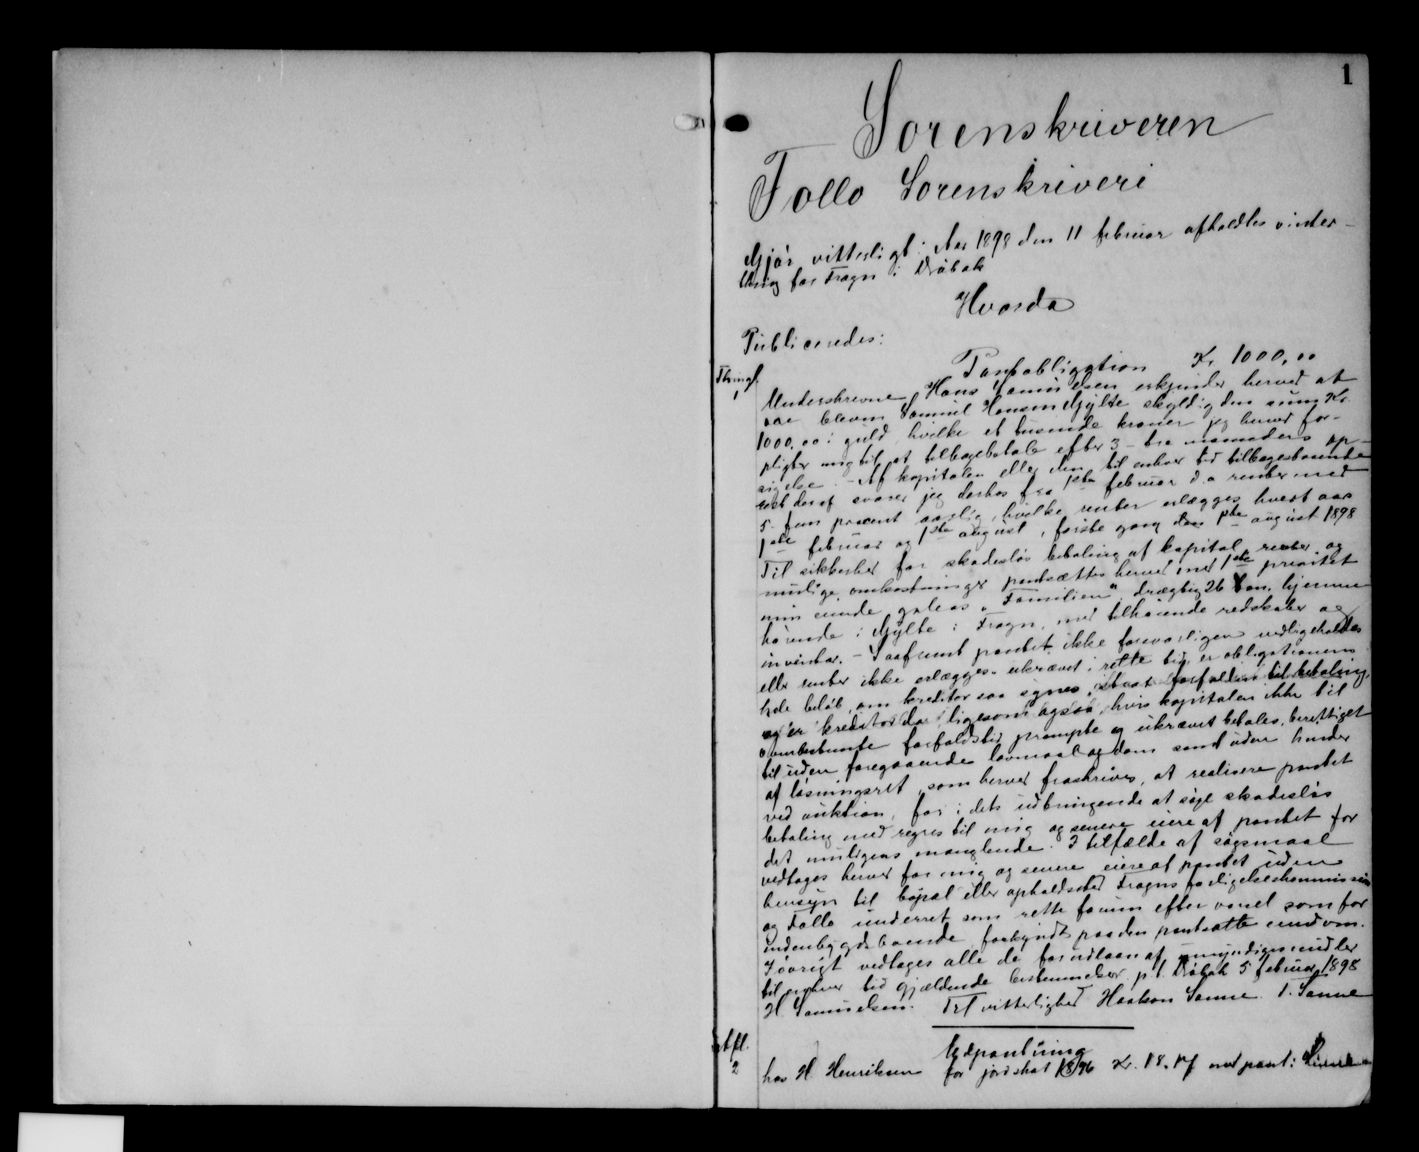 1
Sorenskriveren
Follo Sorenskriveri
Gjör vitterligt: Aar 1898 den 11 februar afholdtes vinter-
thing for Frogn i Dröbak
Hvorda
Publiceredes:
Thingl.
1
Pantobligation Kr 1000,00
Underskrevne Hans Samuelsen erkjender herved at
være bleven Samuel Hansen Gylte skyldig den sum Kr
1000,00 i guld, hvilke et tusende kroner jeg herved for-
pligter mig til at tilbagebetale efter 3 - tre maaneders op-
sigelse. - Af kapitalen eller den til enhver tid tilbagestaaende
rest deraf svarer jeg derhos fra 1ste februar d a renter med
5 - fem procent aarlig, hvilke renter erlægges hvert aars
1ste februar og 1ste august, første gang den 1ste august 1898
Til sikkerhed for skadeslös betaling af kapital, renter og
mulige omkostninger pantsættes herved med 1ste prioritet
min eiende galeas "Familien", drægtig 26 ton, hjemme-
hörende i Gylte i Frogn, med tilhörende redskaber og
inventar. - Saafremt pantet ikke forsvarligen vedligeholdes
eller renter ikke erlægges ukrævet i rette tid, er obligationens
hele belöb, om kreditor saa synes, straks forfalden til betaling,
og er kreditor da, ligesom ogsaa hvis kapitalen ikke til
ovenbestemte forfaldstid prompte og ukrævet betales, berettiget
til uden foregaaende lovmaal og dom samt uden hinder
af lösningsret, som herved fraskrives, at realisere pantet
ved auktion, for i dets udbringende at söge skadeslös
betaling med regres til mig og senere eiere af pantet for
det muligens manglende. I tilfælde af sögsmaal
vedtages herved for mig og senere eiere af pantet uden
hensyn til bopæl eller opholdssted Frogns forligelseskommission
og Follo underret som rette forum efter varsel som for
indenbygdsboende, forkyndt paa den pantsatte eiendom.
Iövrigt vedtages alle de for udlaan af umyndiges midler
til enhver tid gjældende bestemmelser. p. t. Dröbak 5 februar 1898
H Samuelsen. Til vitterlighed Haakon Sanne T. Sanne
2
Udpantning
hos H Henriksen for jordskat 1896 Kr. 18.17 med pant i